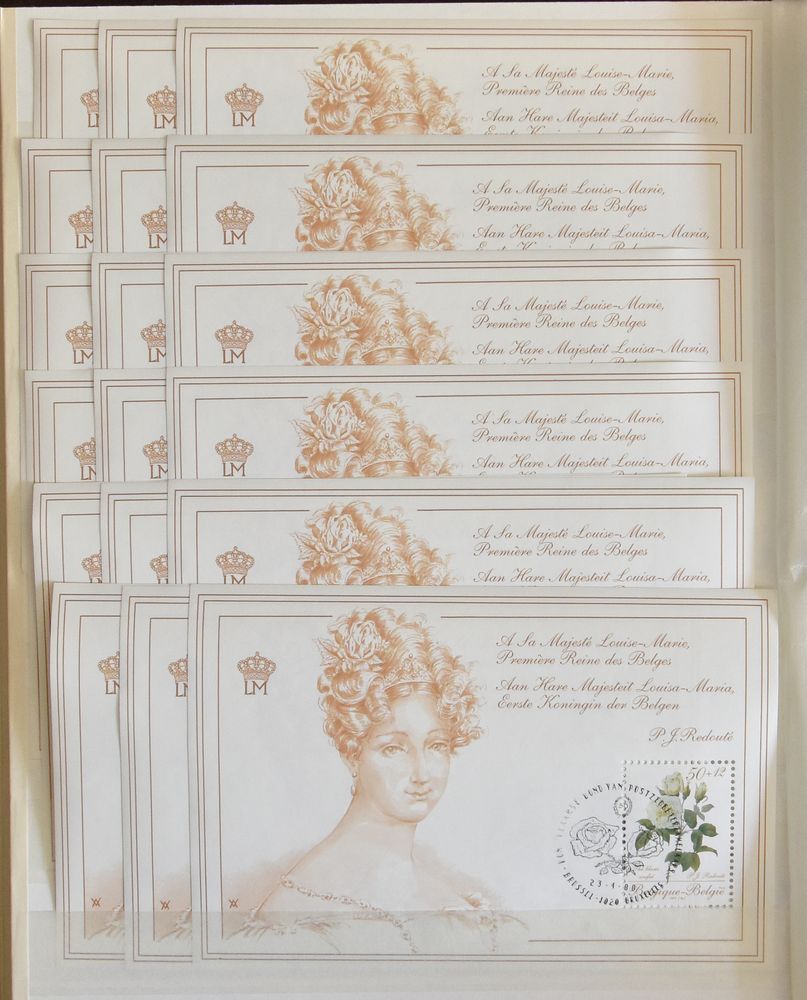 LM
LM
LM
A Sa Majesté Louise-Marie,
Première Reine des Belges
Aan Hare Majesteit Louisa-Maria,
Eerste Koningin der Belgen
LM
LM
LM
A Sa Majesté Louise-Marie,
Première Reine des Belges
Aan Hare Majesteit Louisa-Maria,
Eerste Koningin der Belgen
LM
LM
LM
A Sa Majesté Louise-Marie,
Première Reine des Belges
Aan Hare Majesteit Louisa-Maria,
LM
LM
LM
A Sa Majesté Louise-Marie,
Première Reine des Belges
Aan Hare Majesteit Louisa-Maria,
LM
LM
LM
A Sa Majesté Louise-Marie,
Première Reine des Belges
Aan Hare Majesteit Louisa-Maria,
LM
LM
LM
A Sa Majesté Louise-Marie,
Première Reine des Belges
Aan Hare Majesteit Louisa-Maria,
Eerste Koningin der Belgen
P.J. Redouté
50+12
BOND VAN POSTZEGEL
P.J. Redouté
Belgique-België
BRUSSEL-1020 BRUXELLES